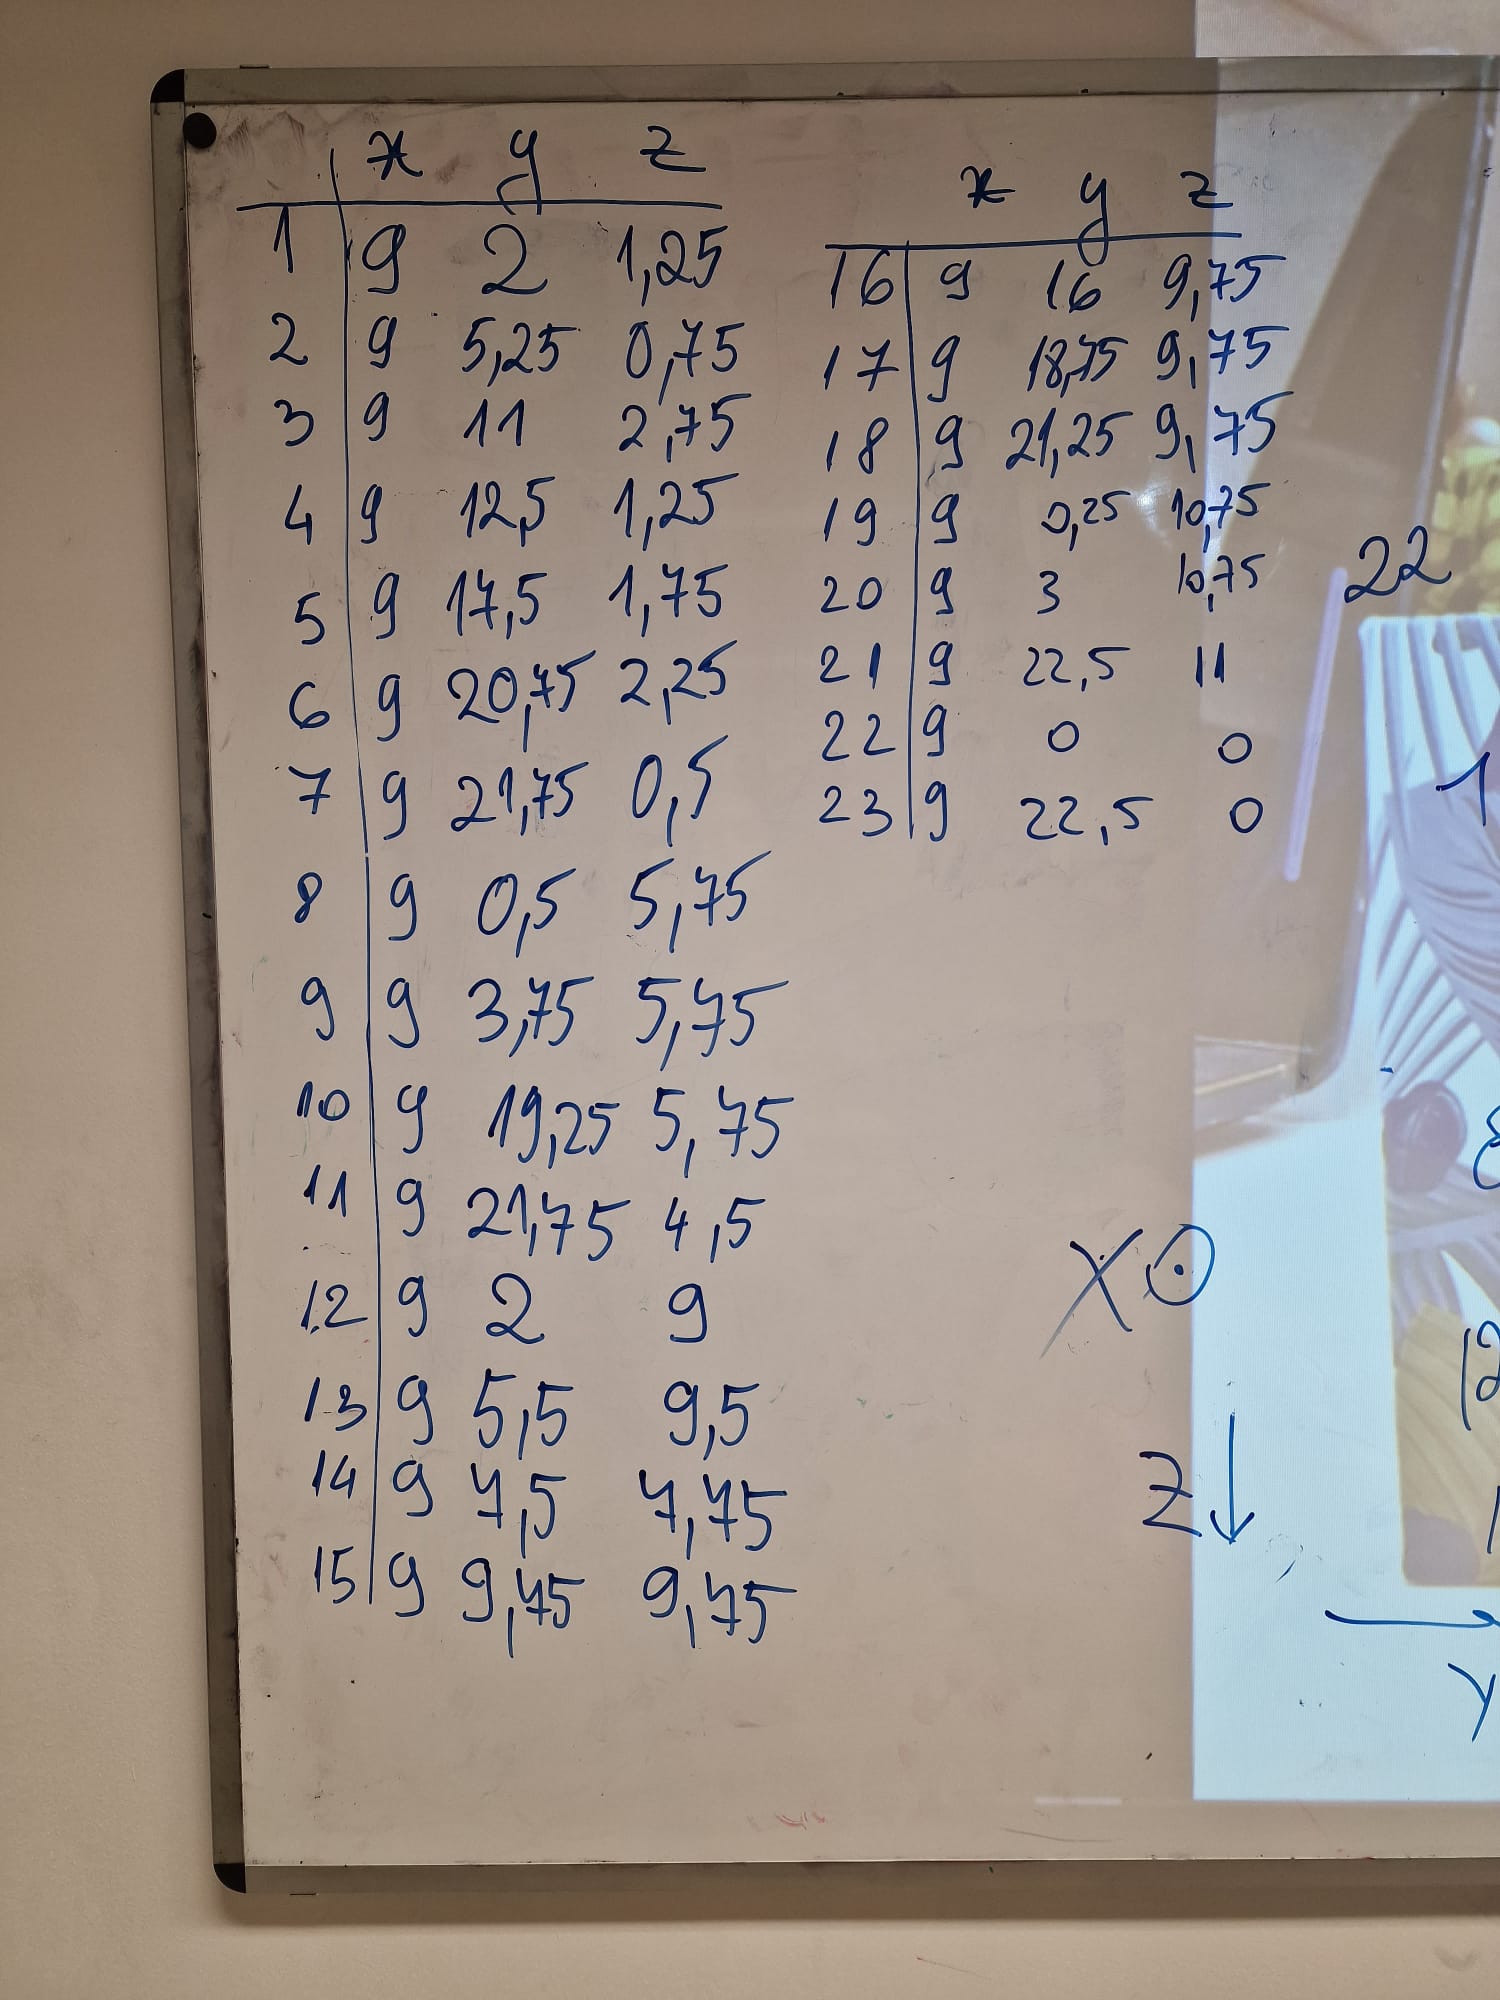 x y z
1 9 2 1,25
2 9 5,25 0,75
3 9 11 2,75
4 9 12,5 1,25
5 9 17,5 1,75
6 9 20,75 2,25
7 9 21,75 0,5
8 9 0,5 5,75
9 9 3,75 5,75
10 9 19,25 5,75
11 9 21,75 4,5
12 9 2 9
13 9 5,5 9,5
14 9 7,5 7,75
15 9 9,75 9,75
x y z
16 9 16 9,75
17 9 18,75 9,75
18 9 21,25 9,75
19 9 0,25 10,75
20 9 3 10,75
21 9 22,5 11
22 9 0 0
23 9 22,5 0
22
1
12
X
Z
Y